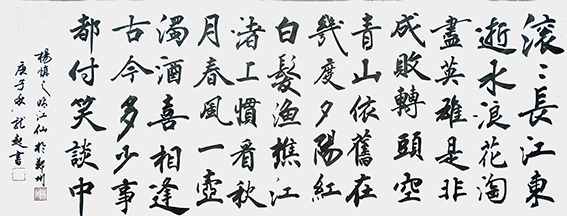 滾〻長江東
逝水浪花淘
盡英雄是非
成敗轉頭空
青山依舊在
幾度夕陽紅
白髮漁樵江
渚上慣看秋
月春風一壺
濁酒喜相逢
古今多少事
都付笑談中
楊慎之臨江仙於鄭州
庚子秋龍起書